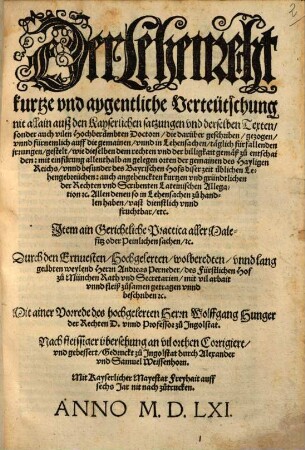 Der Lehenrecht
kurtze vnd aygentliche Verteütschung
nit allain auß den Kayserlichen satzungen vnd derselben Texten/
sonder auch vilen Hochberümbten Doctorn/ die darüber geschriben/ gezogen/
vnnd fürnemlich auff die gemainen/ vnnd in Lehensachen/ täglich fürfallenden
jrrungen/ gestelt/ wie dieselben dem rechten vnd der billigkait gemäß zů entschai
den: mit einfürung allenthalb an gelegen orten der gemainen des Hayligen
Reichs/ vnnd besunder des Bayrischen Hofs diser zeit üblichen Le-
hengebreüchen: auch angehenckten kurtzen vnd gründtlichen
der Rechten vnd Scribenten Lateinischen Allega-
tion etc. Allen denen so in Lehensachen zů hand-
len haben/ vast dienstlich vnnd
fruchtbar/ etc.
Item ain Gerichtliche Practica aller Male-
fitz oder Peinlichen sachen/ etc.
Durch den Ernuesten/ Hochgelerten/ wolberedten/ vnnd lang
geübten weylend Herrn Andreas Perneder/ des Fürstlichen Hof
zů München Rath vnd Secretarien/ mit vil arbait
vnnd fleiß zůsamen getragen vnnd
beschriben etc.
Mit ainer Vorrede des hochgelerten Herrn Wolffgang Hunger
der Rechten D. vnnd Professor zů Ingolstat.
Nach fleissiger übersehung an vil orthen Corrigiert/
vnd gebessert/ Gedruckt zů Ingolstat durch Alexander
vnd Samuel Weissenhorn.
Mit Kayserlicher Mayestat Freyhait auff
sechs Jar nit nach zůtrucken.
ANNO M. D. LXI.